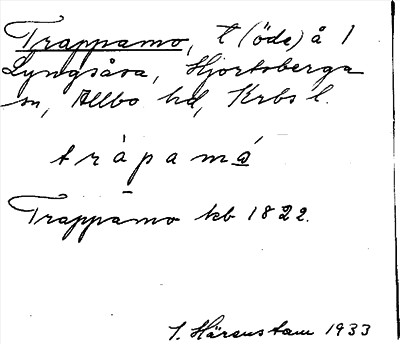 Trappamo, t (öde) å 1
Lyngsåsa, Hjortsberga
sn, Allbo hd, Krbs l.
tràpamá̲
Trappāmo kb 1822.
I. Härenstam 1933